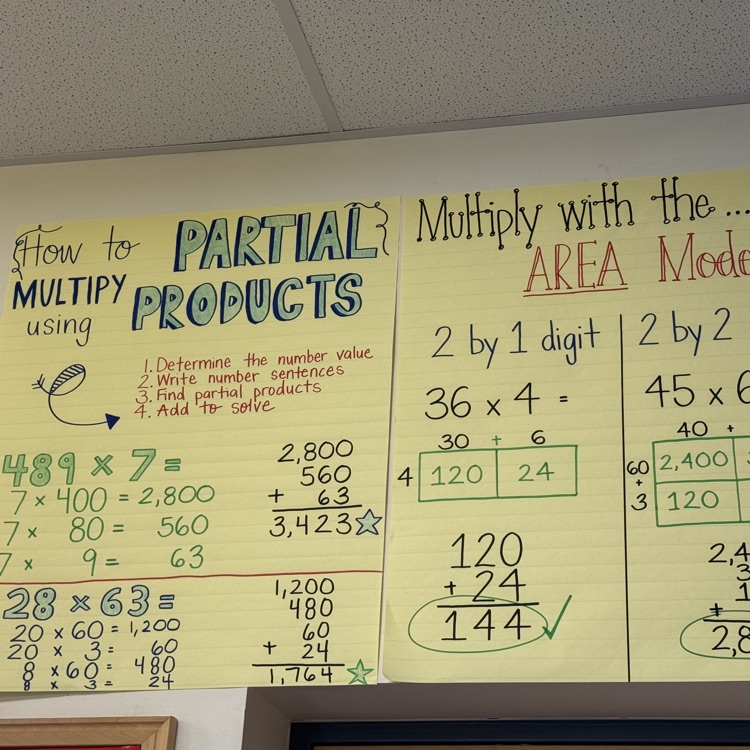 How to PARTIAL
MULTIPY PRODUCTS
using
1. Determine the number value
2. Write number sentences
3. Find partial products
4. Add to solve
489 × 7 =
7 × 400 = 2,800
7 × 80 = 560
7 × 9 = 63
2,800
560
+ 63
3,423
28 × 63 =
20 × 60 = 1,200
20 × 3 = 60
8 × 60 = 480
8 × 3 = 24
1,200
480
60
+ 24
1,764
Multiply with the...
AREA Mode
2 by 1 digit
36 × 4 =
30 + 6
4 120 24
120
+ 24
144
2 by 2
45 × 6
40 +
60 2,400
+
3 120
2,4
3
1
+
2,8